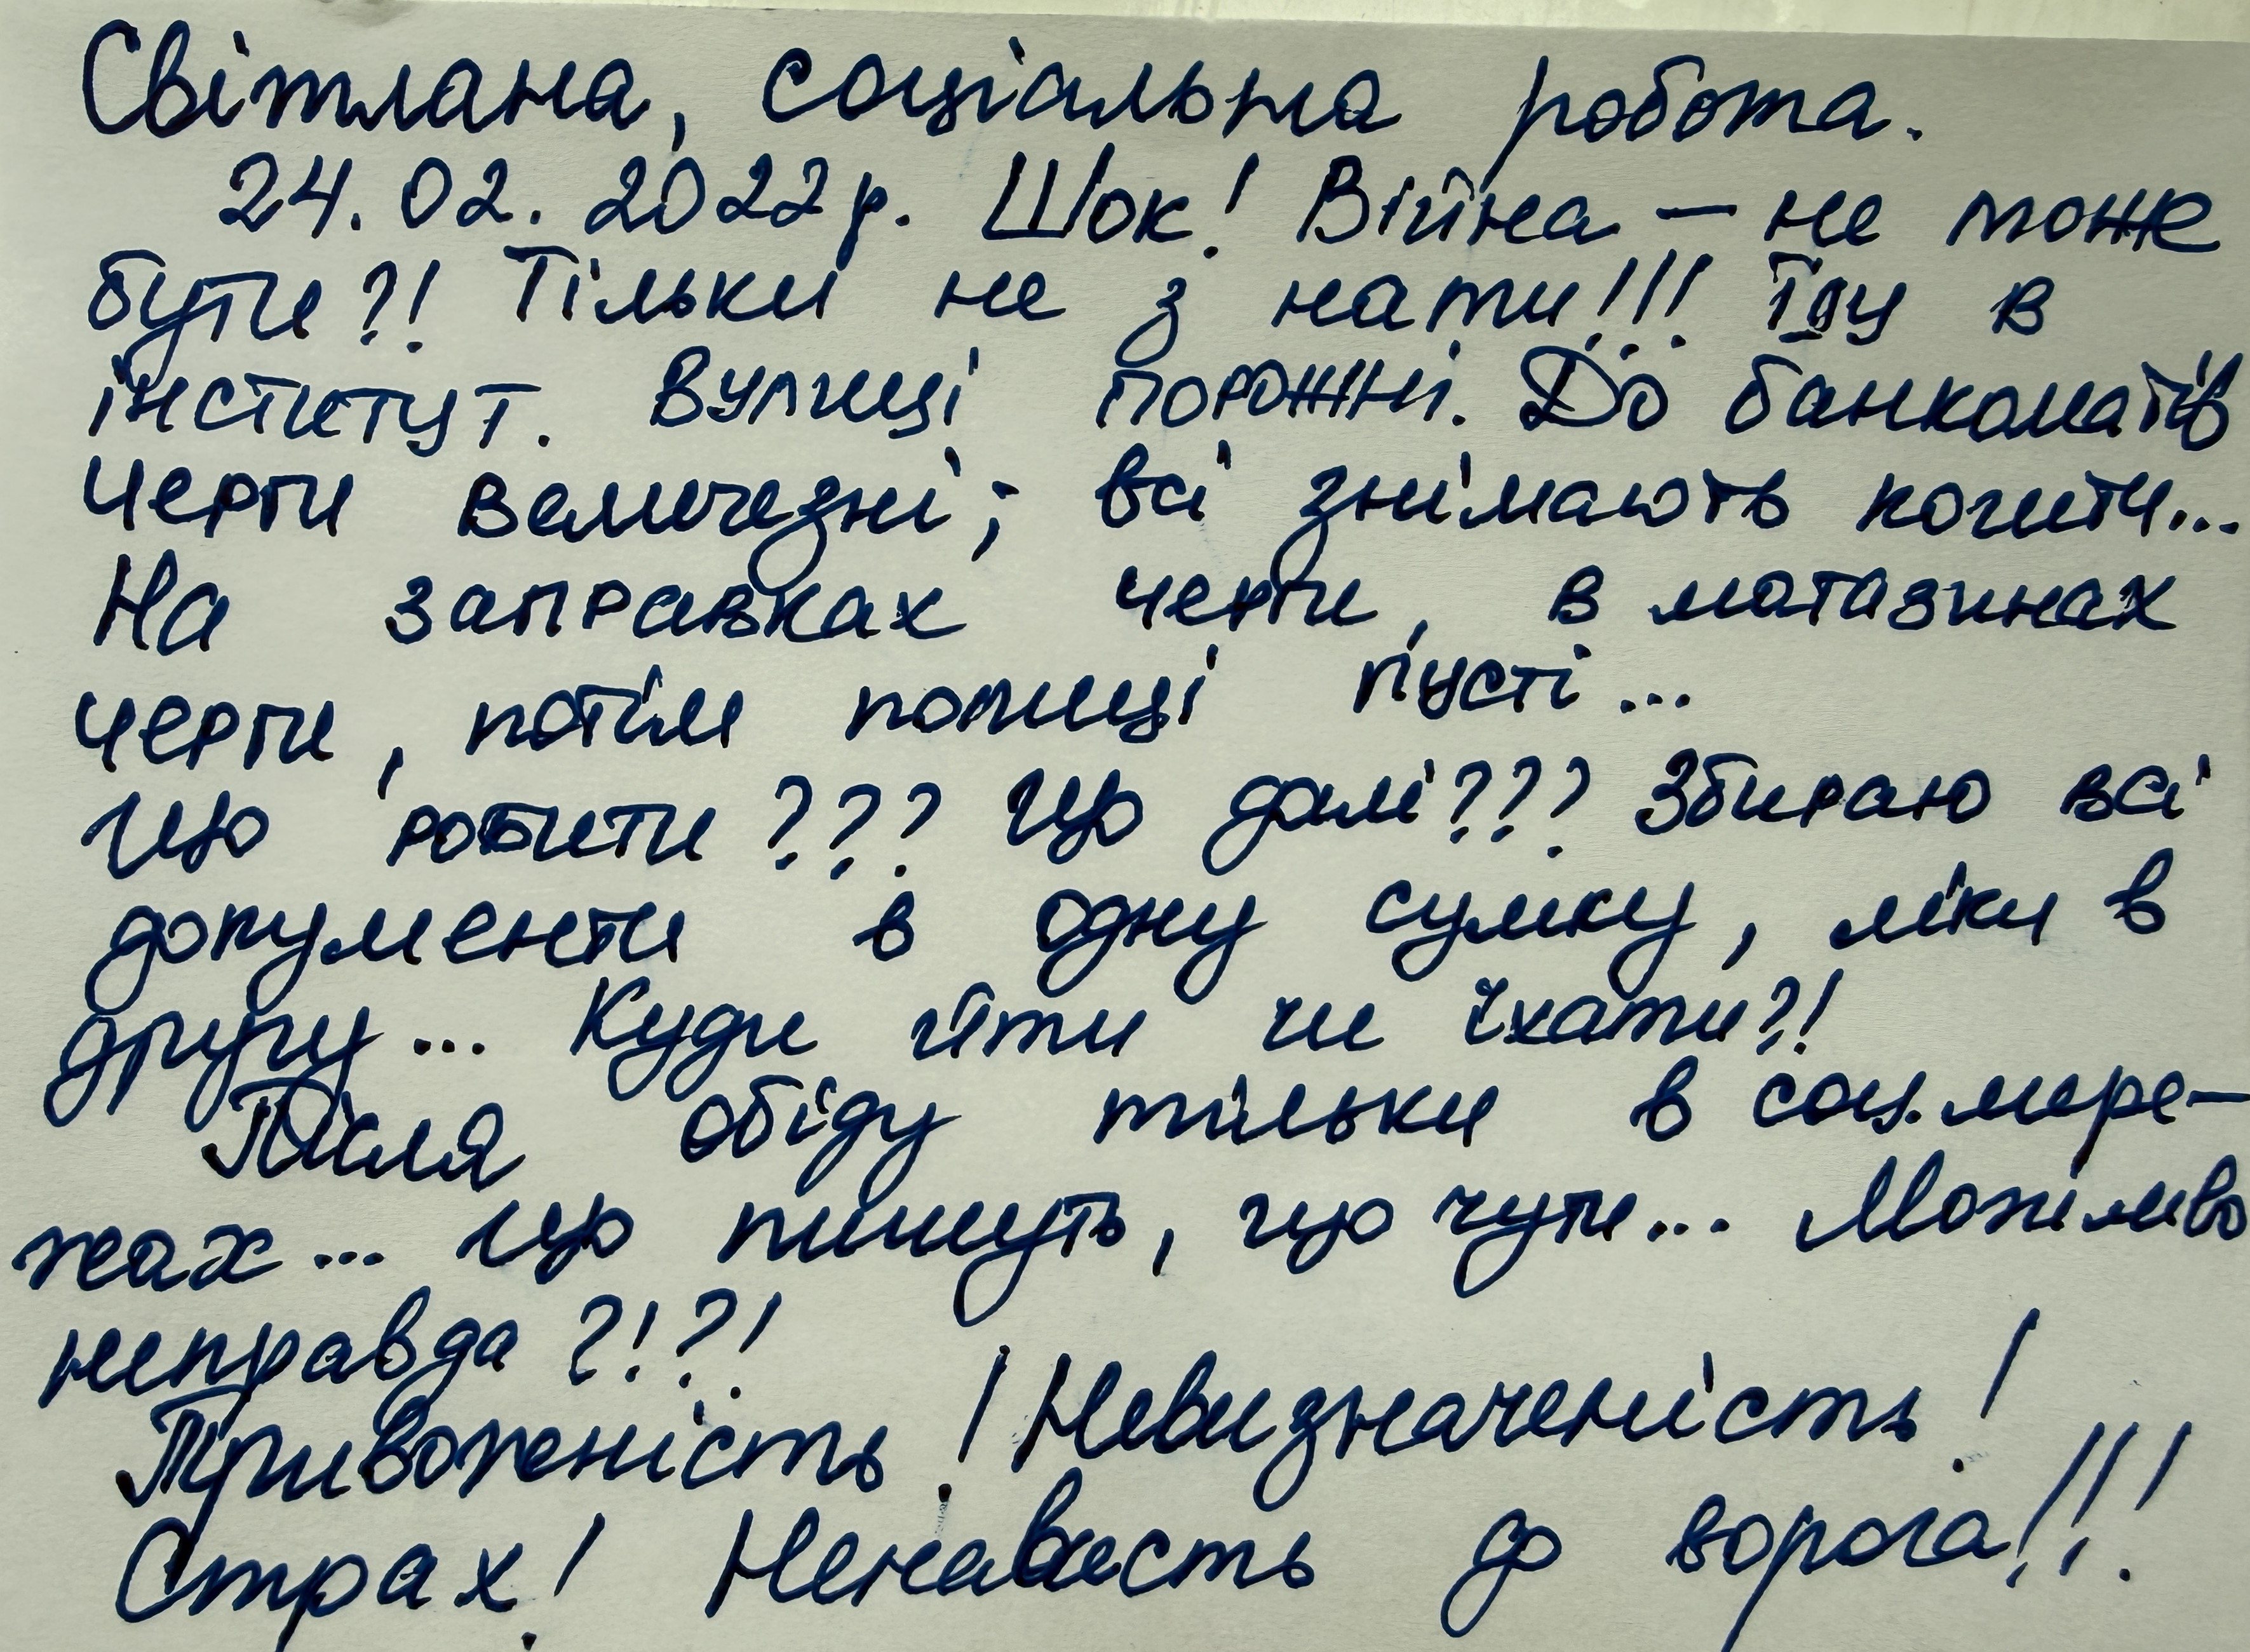 Світлана, соціальна робота.
24.02.2022р. Шок! Війна – не може
бути?! Тільки не з нами!!! Іду в
інститут. Вулиці порожні. До банкоматів
черги величезні; всі знімають кошти...
На заправках черги, в магазинах
черги, потім полиці пусті...
Що робити??? Що далі??? Збираю всі
документи в одну сумку, ліки в
другу... Куди йти чи їхати?!
Після обіду тільки в соц.мере-
жах... Що пишуть, що чути... Можливо
неправда?!?!
Тривоженість! Невизначеність!
Страх! Ненависть до ворога!!!